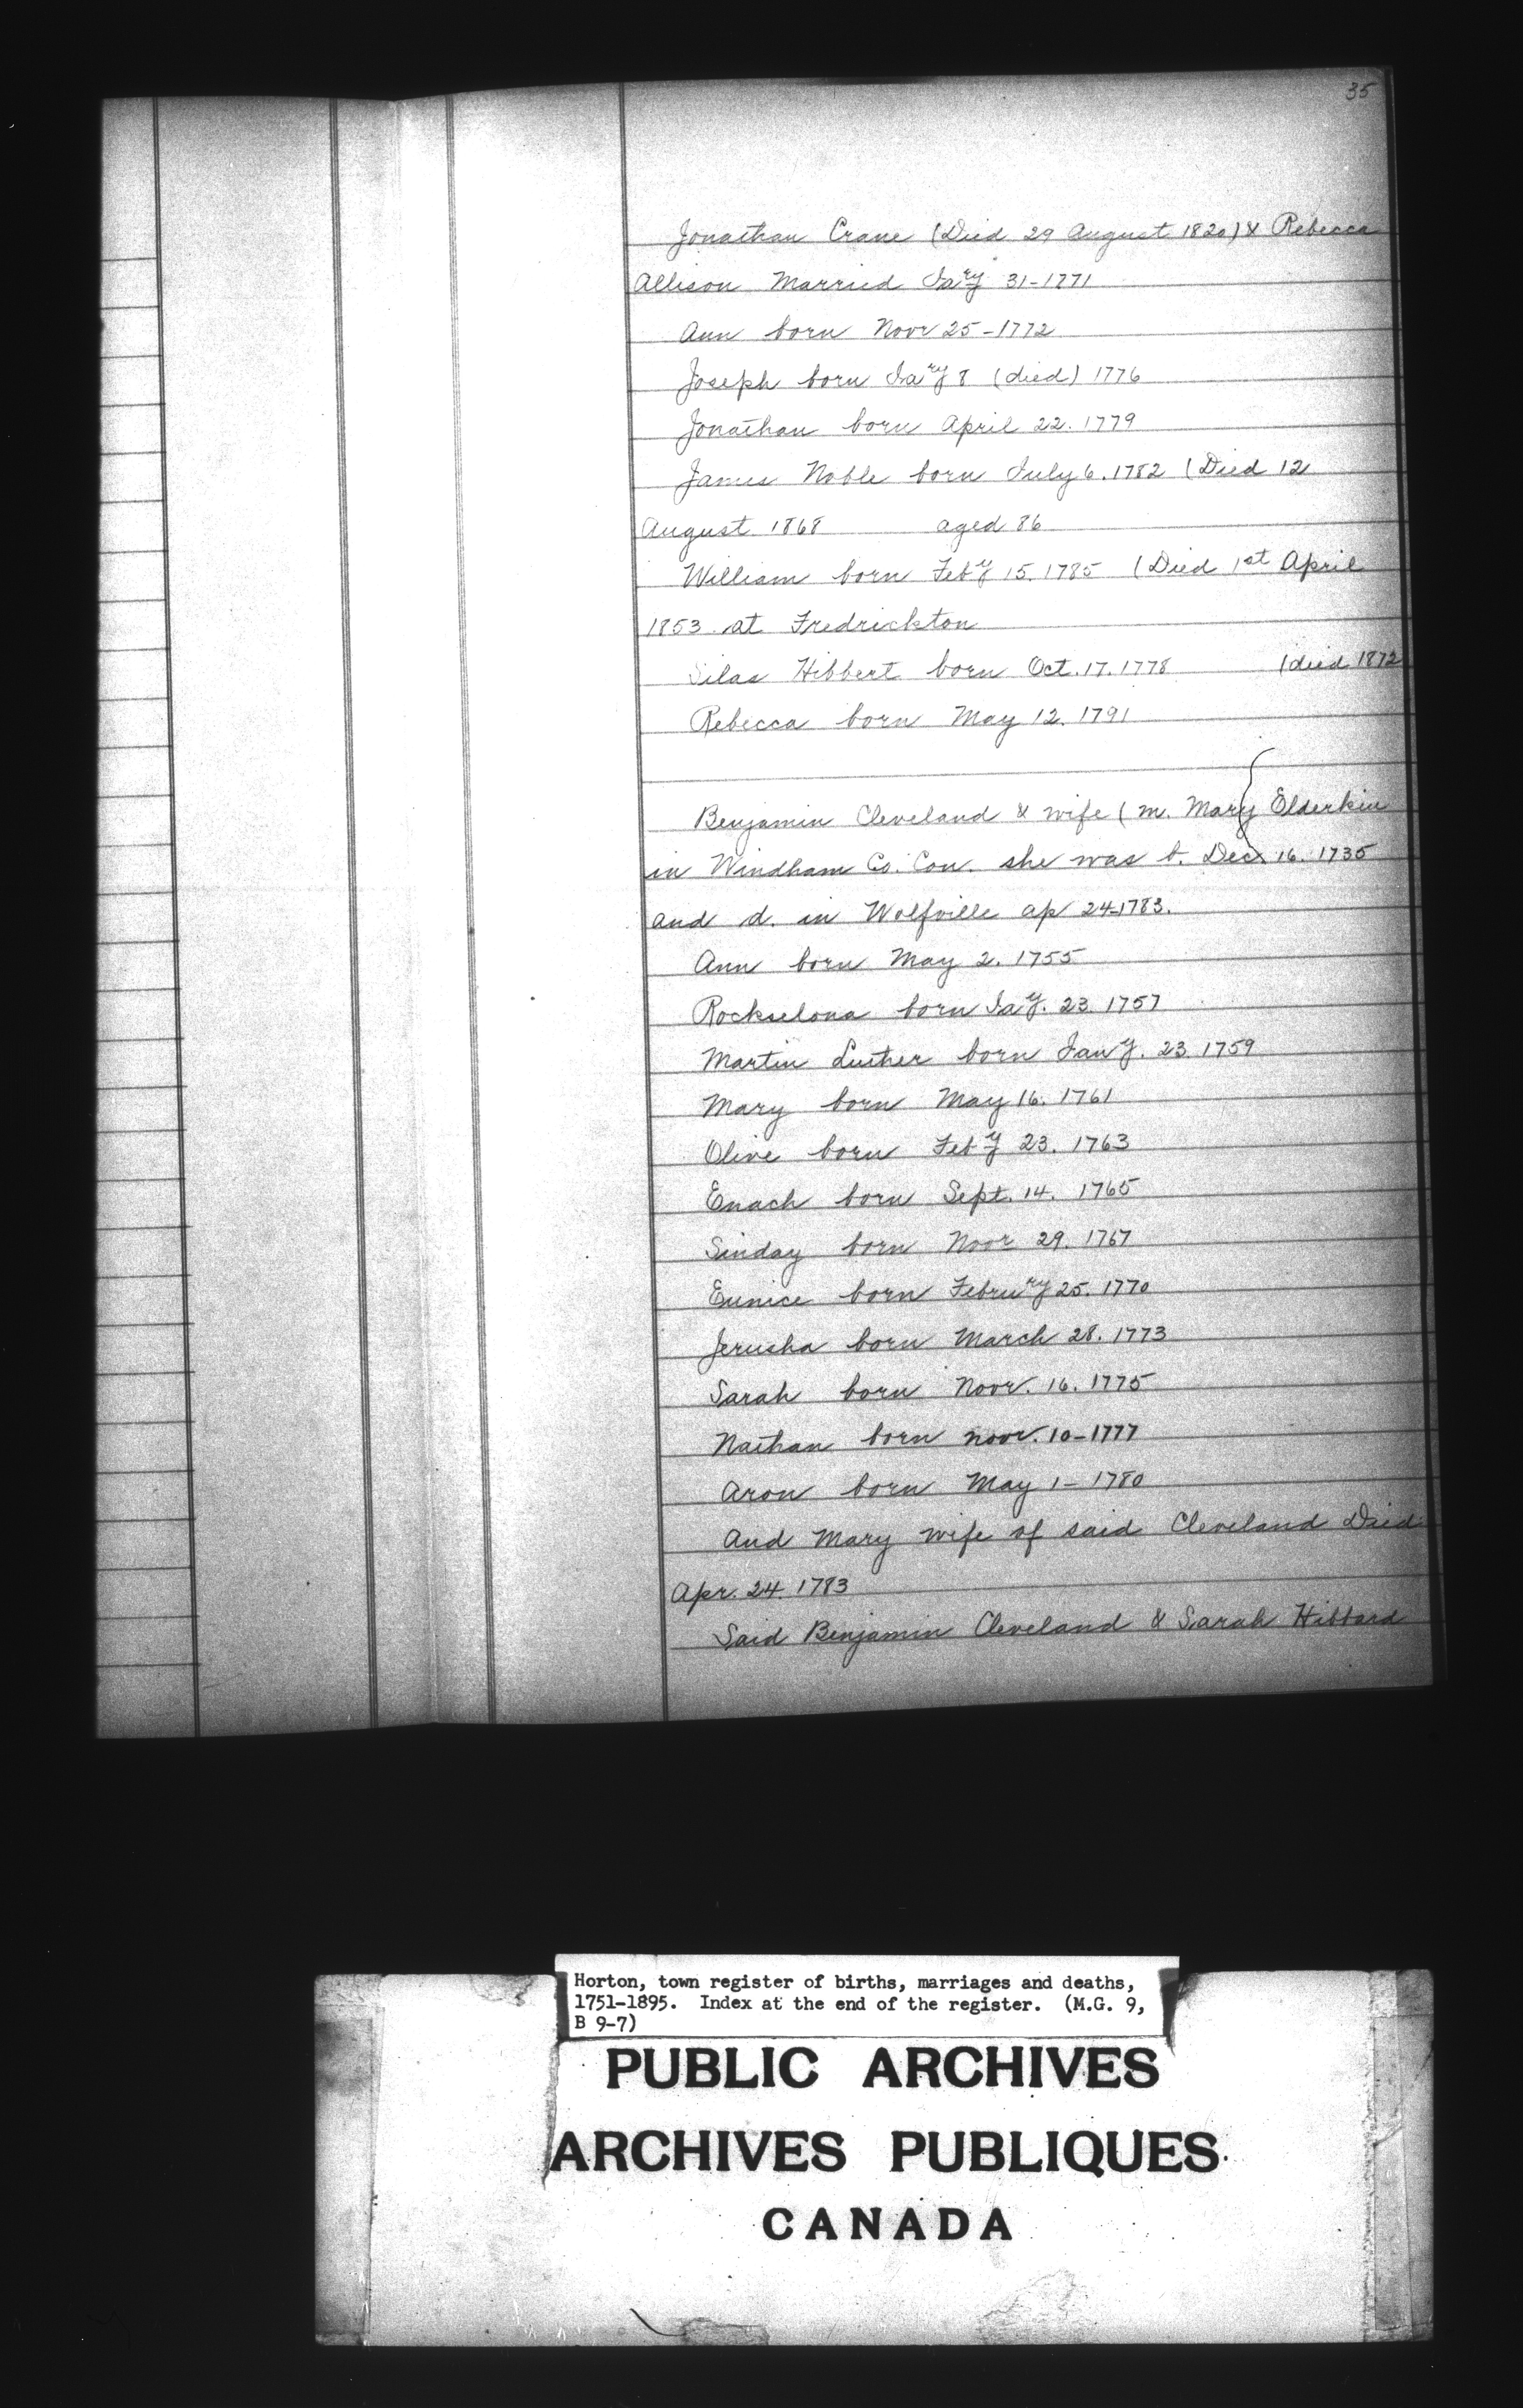 35
Jonathan Crane (Died 29 August 1820) & Rebecca
Allison Married Jary 31-1771
Ann born Novr 25-1772
Joseph born Jary 8 (died) 1776
Jonathan born April 22. 1779
James Noble born July 6. 1782 (Died 12
August 1868 aged 86
William born Feby 15. 1785 (Died 1st April
1853 at Fredrickton
Silas Hibbert born Oct. 17. 1778 (died 1872
Rebecca born May 12. 1791
Benjamin Cleveland & wife (m. Mary Elderkin
in Windham Co. Con. she was b. Dec 16. 1735
and d. in Wolfville ap 24-1783.
Ann born May 2. 1755
Rockselona born Jay. 23. 1757
Martin Luther born Jany. 23. 1759
Mary born May 16. 1761
Olive born Feby 23. 1763
Enach born Sept. 14. 1765
Sinday born Novr 29. 1767
Eunice born Februry 25. 1770
Jerusha born March 28. 1773
Sarah born Novr. 16. 1775
Nathan born novr. 10-1777
Aron born May 1-1780
And Mary wife of said Cleveland Died
Apr. 24. 1783
Said Benjamin Cleveland & Sarah Hibbard
Horton, town register of births, marriages and deaths,
1751-1895. Index at the end of the register. (M.G. 9,
B 9-7)
PUBLIC ARCHIVES
ARCHIVES PUBLIQUES
CANADA